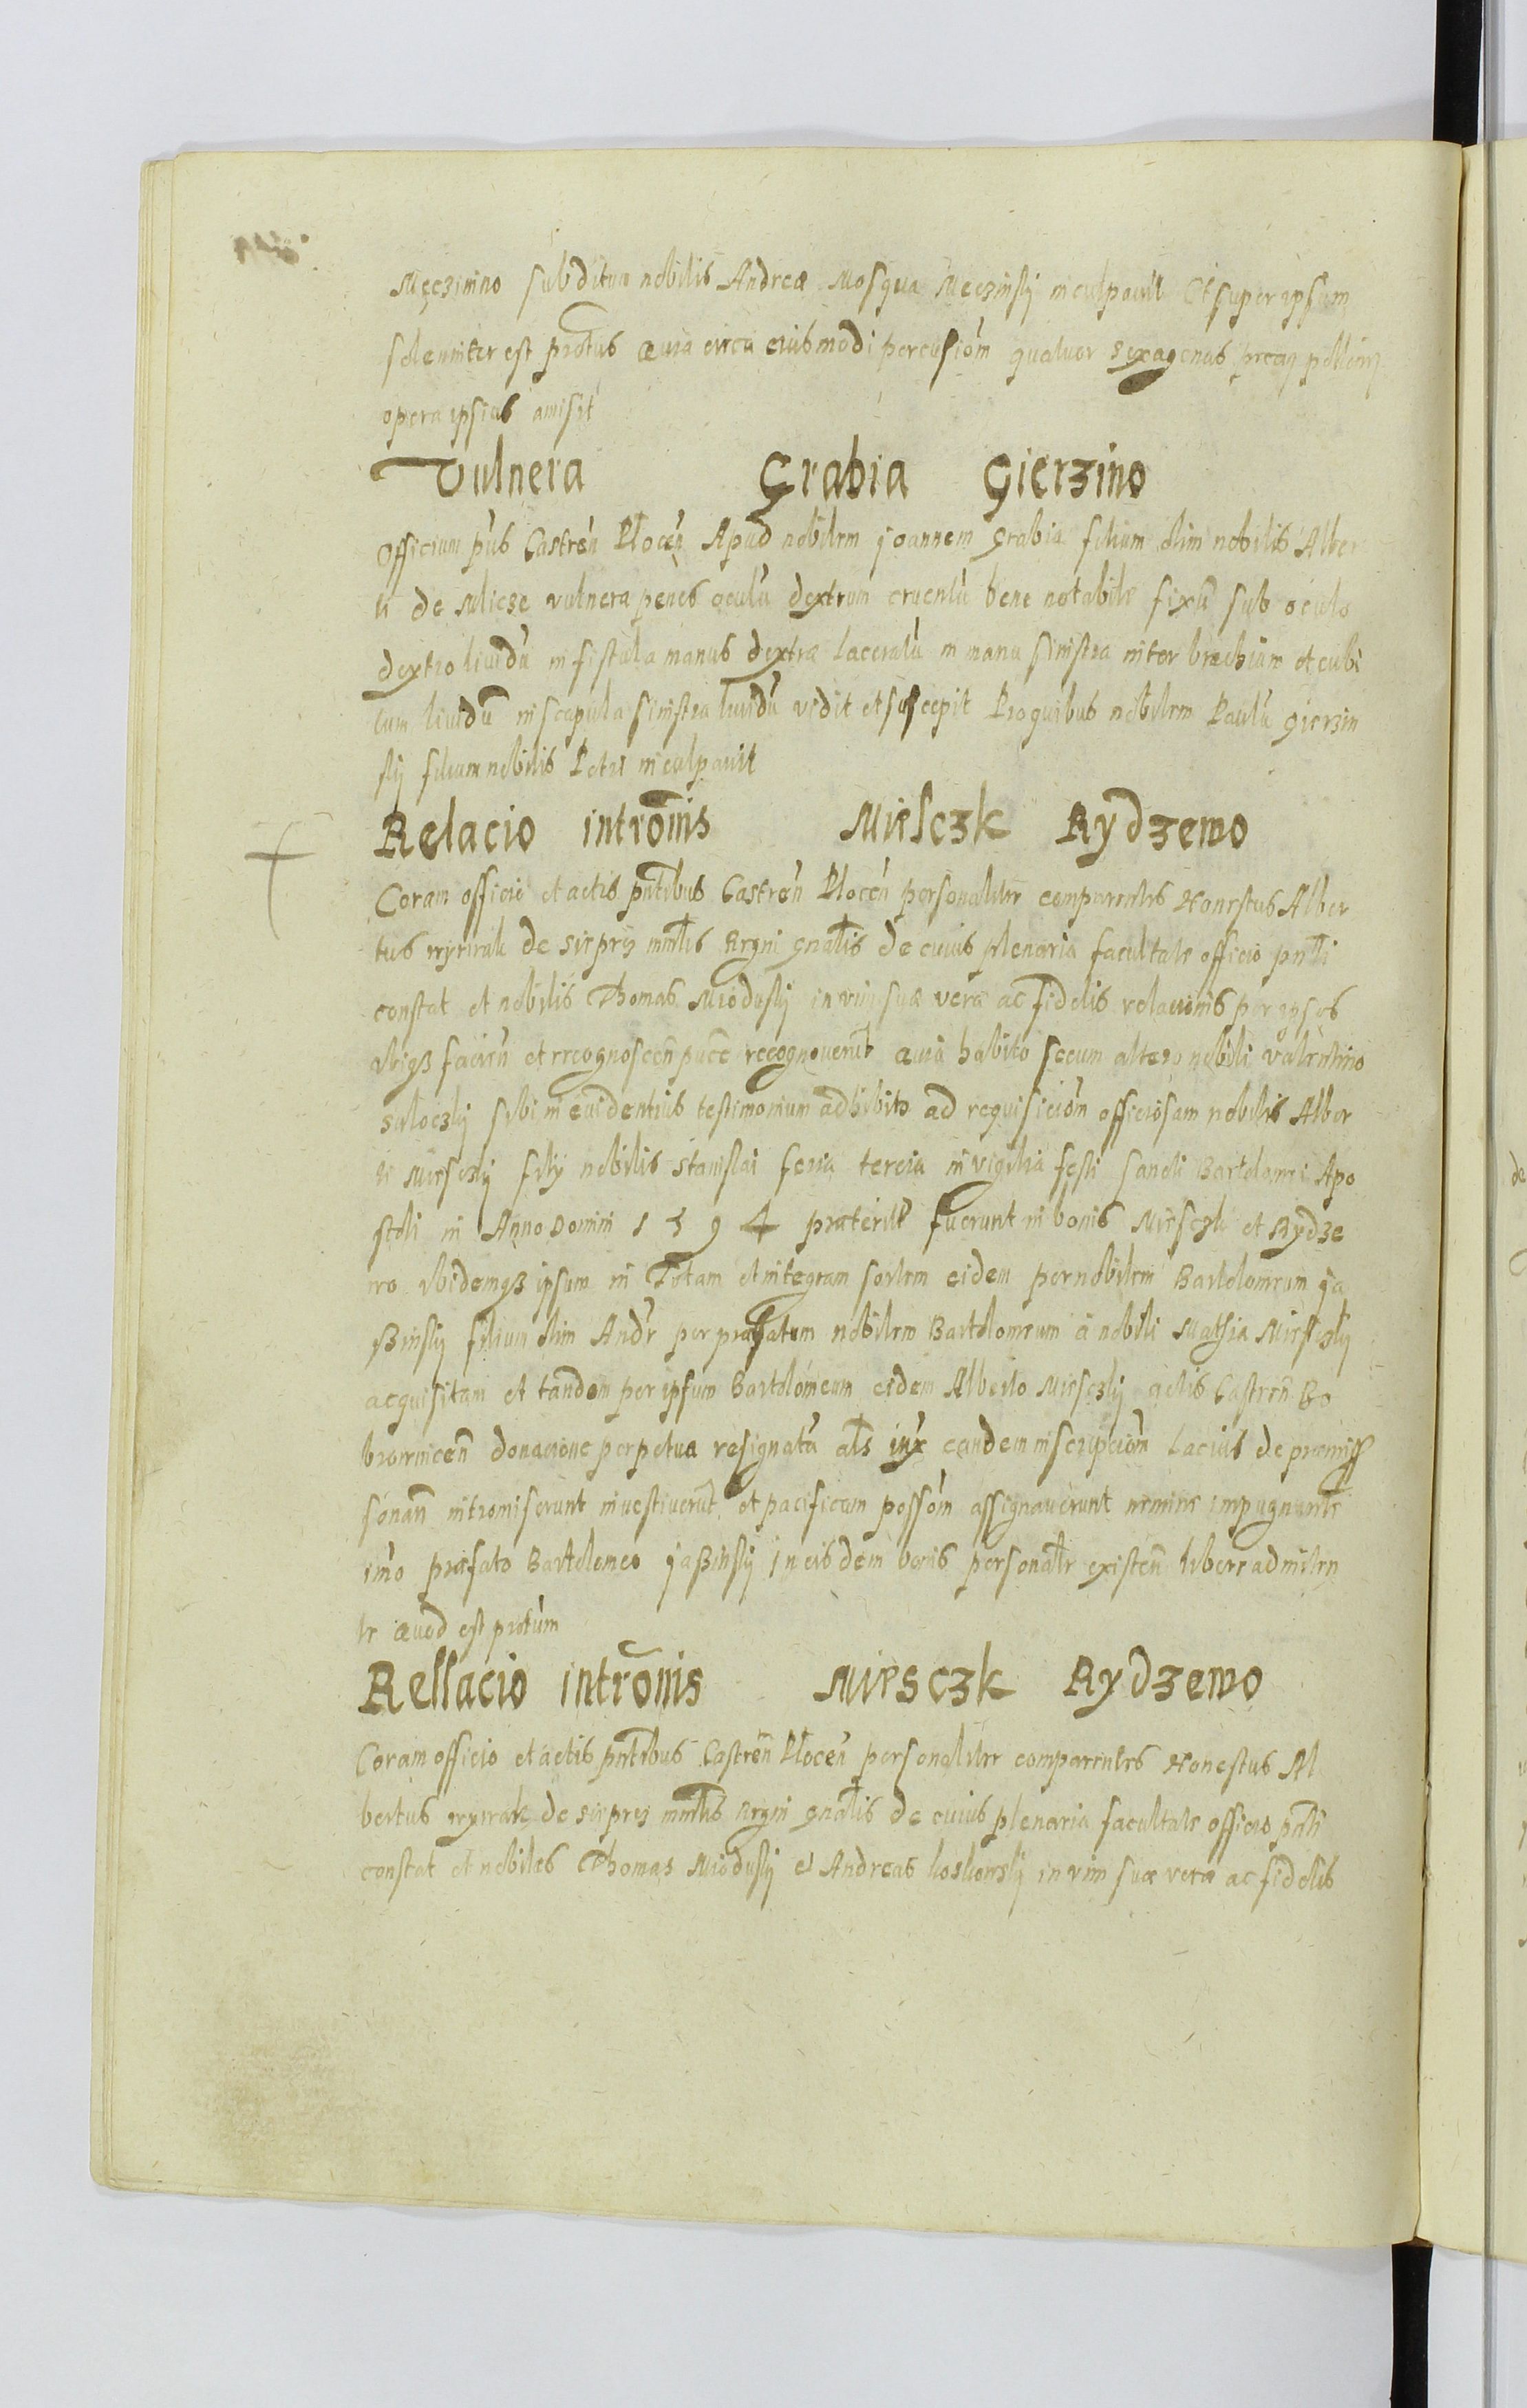 Męczinino subditum nobilis Andreæ Mosqua Meczinsky inculpavit Et super ipsum
solenniter est protus Quia circa eiusmodi percusiom quatuor sexagenas
opera ipsius amisit
Vulnera Grabia Gierzino
Officium pñs Castreñ Ploceñ Apud nobilem Joannem Grabia filium olim nobilis Alber
ti de vulnera penes oculũ dextrum cruentũ bene notabile fixũ sub oculo
dextro lividũ in fistula manus dextræ laceratũ in manu sinistra inter brachium et cubi
tum lividũ in scapula sinistra lividũ vidit et suscepit Pro quibus nobilem Paulũ Gierzin
sky filium nobilis Petri inculpavit
Relacio intromis Miesczk Rydzewo
Coram officio et actis pñtibus Castreñ Plocen personaliter comparentes Honestus Alber
tus de Sieprcz mnlis Regni gnalis de cuius plenaria facultate officio pnti
constat et nobilis Thomas Miodusky in vim suæ veræ ac fidelis relationis per ipsos
facieñ et recognosceñ pñce recognoverũt Quia habito secum altero nobili Valentino
sibi in evidentius testimonium adhibito ad requisiciõm officiosam nobilis Alber
ti Miesczky filÿ nobilis Stanislai feria tercia in vigilia festi Sancti Bartolomei Apo
stoli in Anno Domini 1594 præterit fuerunt in bonis Miesczk et Rydze
wo Ibidemqз ipsum in Totam et integram sortem eidem per nobilem Bartolomeum Ja
ßinsky filium olim Andr per præfatum nobilem Bartolomeum à nobili Mathia Miesczky
acquisitam et tandem per ipsum Bartolomeum eidem Alberto Miesczky actis Castreñ Bo
brownicen donacione perpetua resignatã als iux eandem inscripciõm Lacius de præmiss
sonañ intromiserunt investiverũt et pacificam possõm assignaverunt nemine impugnante
imo præfato Bartolomeo Jaßinsky in eisdem bonis personalr existeñ libere admitten
te Quod est protum
Rellacio intromis Miesczk Rydzewo
Coram officio et actis pñtibus Castreñ Plocen personaliter comparentes Honestus Al
bertus de Sieprcz mnlis Regni gnalis de cuius plenaria facultate officio pnti
constat et nobiles Thomas Miodusky et Andreas Koskowsky in vim suæ veræ ac fidelis